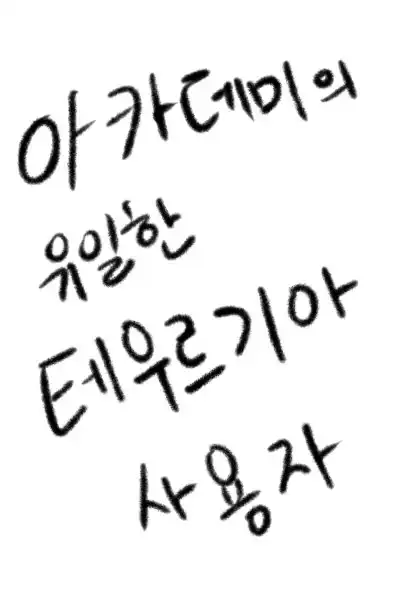 아카데미의
유일한
테우르기아
사용자